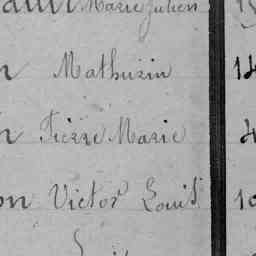 Marie Julien 1
Mathurin 14
Pierre Marie 4
on Victor Louis 10